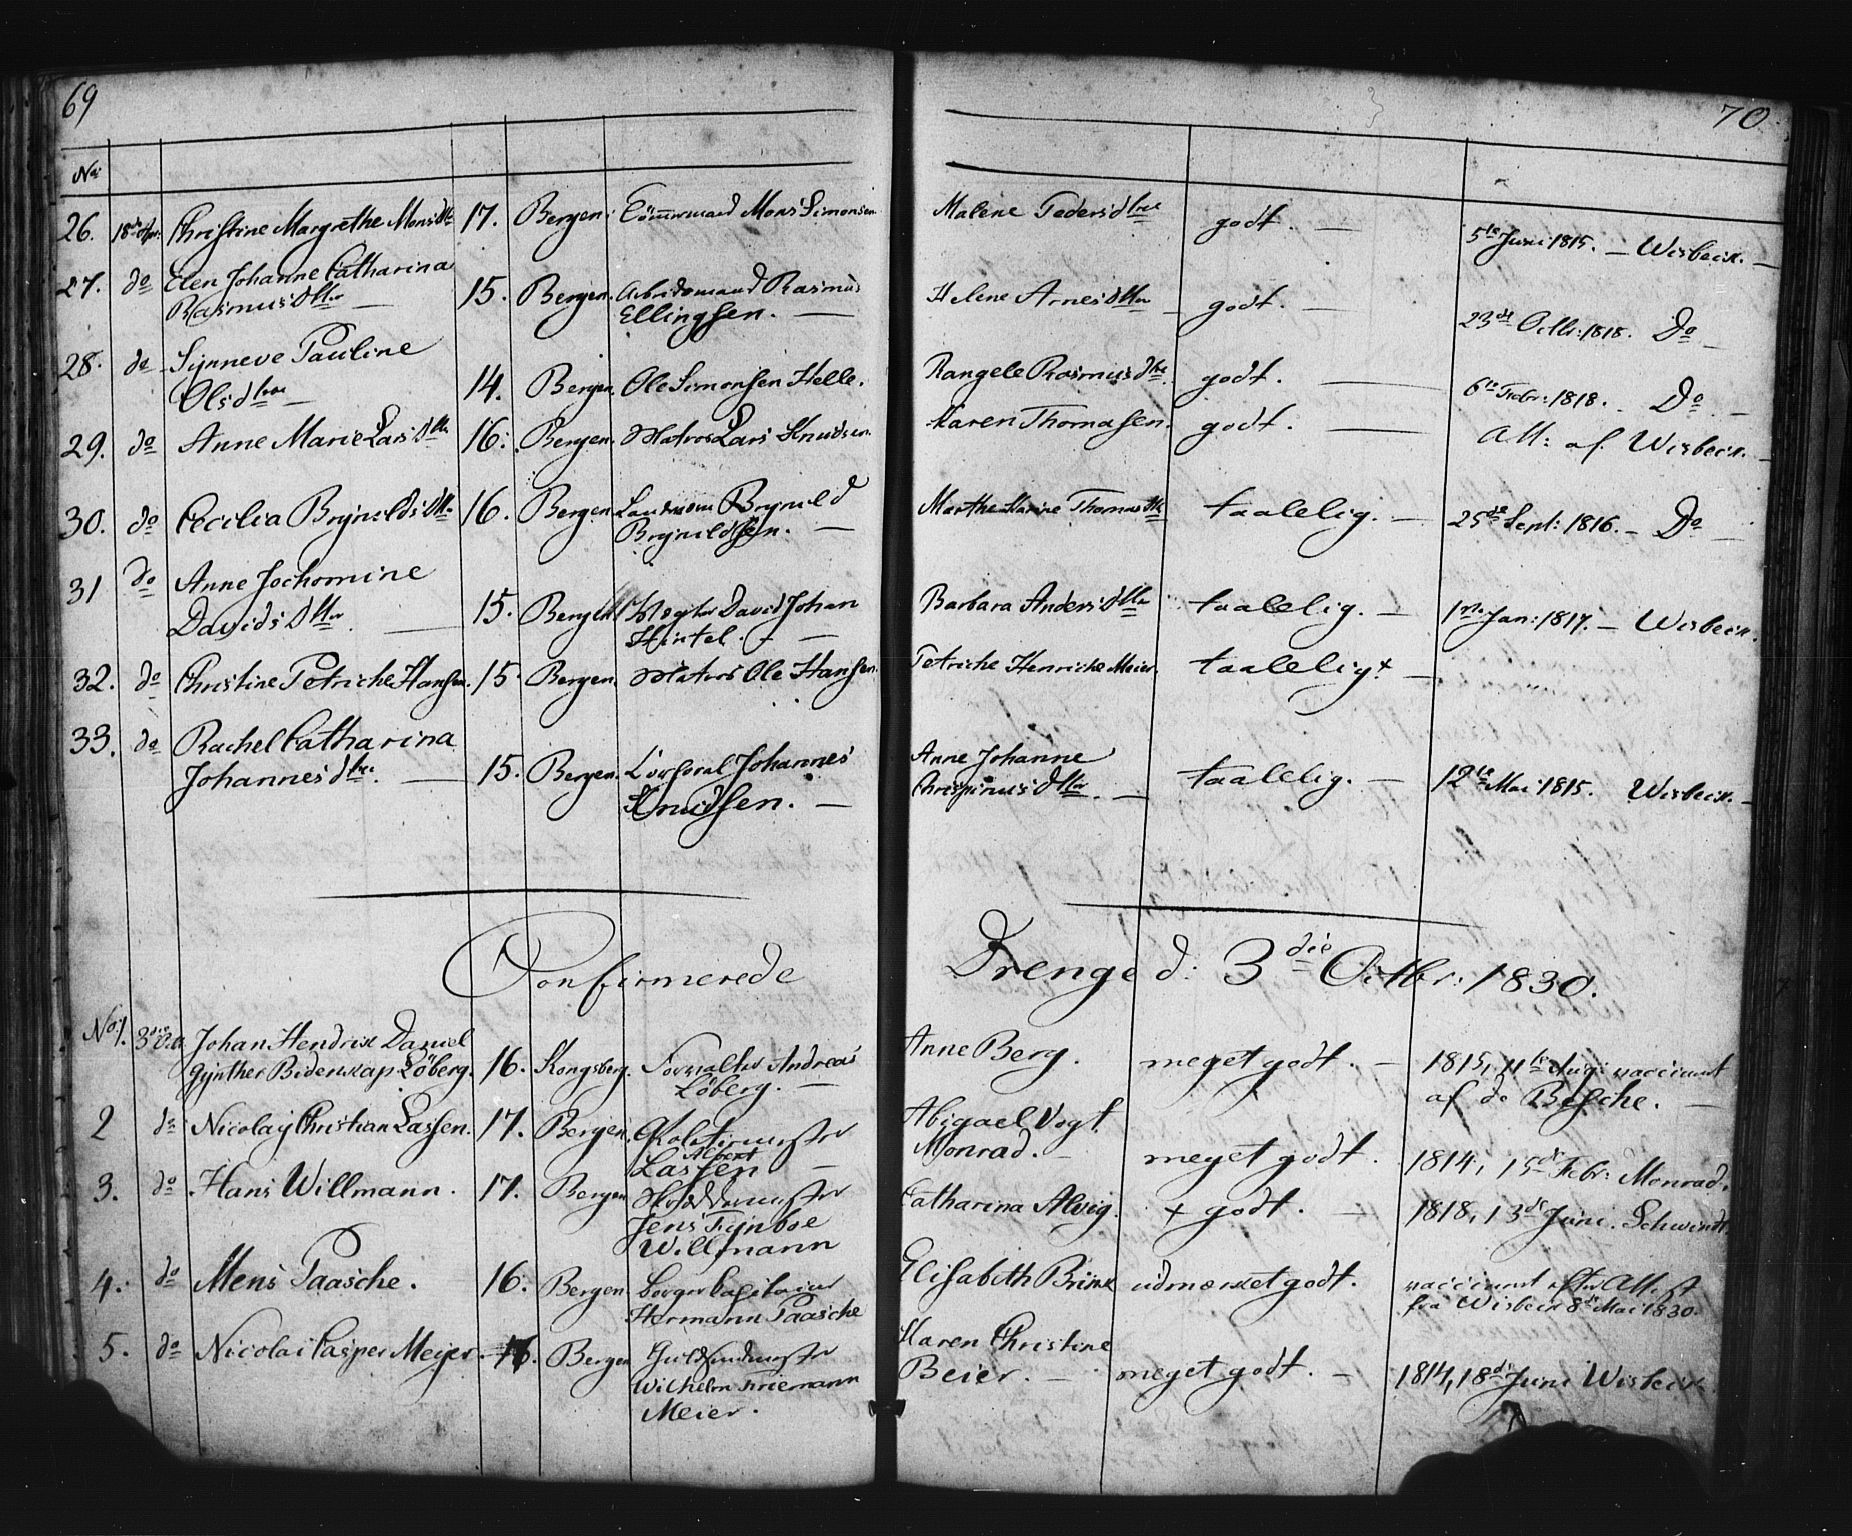 69
70
No:
26. 18de Apr: Christine Margrethe Monsdtr 17. Bergen. Mons Simonsen Malene Pedersdtr godt. — 5te Juni 1815. — Wisbeck. —
27. do Elen Johanne Catharina
Rasmusdtr — 15. Bergen. Arbeidsmand Rasmus
Ellingsen. — Helene Arnesdtr godt. — 23de Octbr: 1818. Do —
28. do Synneve Pauline
Olsdtr — 14. Bergen. Ole Simonsen Helle. Rangele Rasmusdtr godt. — 6te Febr: 1818. Do —
29. do Anne Marie Larsdtr 16. Bergen. Matros Lars Knudsen Karen Thomasen. godt. — Att: af Wisbeck. —
30. do Cecilia Brynildsdtr 16. Bergen Brynild
Brynildsen. — Marthe Marine Thomasdtr taalelig. — 25de Sept: 1816. — Do —
31 do Anne Jochomine
Davidsdtr — 15. Bergen David Johan
Hintel. — Barbara Andersdtr taalelig. — 1ste Jan: 1817. — Wisbeck.
32. do Christine Petriche Hansen. 15 Bergen. Matros Ole Hansen. Petriche Henriche Meier. taalelig + —
33. do Rachel Catharina
Johannesdtr. — 15. Bergen. Corporal Johannes
Knudsen. — Anne Johanne
Chrispinusdtr. — taalelig. — 12te Mai 1815. Wisbeck. —
Confirmerede Drenge d: 3die Octbr: 1830.
No 1. 3die Oct. Johan Hendrik Daniel
Gynther Bidenkap Löberg. 16. Kongsberg. Forvalter Andreas
Löberg. — Anne Berg. meget godt. — 1815, 11te Aug: vaccinert
af do Besche. —
2 do Nicolay Christian Lassen. 17. Bergen.
Albert
Lassen — Abigael Vogt
Monrad. — meget godt. 1814, 15de Febr: Monrad.
3. do Hans Willmann. 17. Bergen
Jens Fynboe
Willmann Catharina Alvig. + godt. — 1818, 13de Juni. Schwindt.
4. do Mens Paasche. 16. Bergen Borgercapitain
Hermann Paasche Elisabeth Brinck udmærket godt. vaccinert efter Attest
fra Wisbeck 8de Mai 1830.
5. do Nicolai Casper Meyer. 16. Bergen Guldsmedmester
Wilhelm Friemann
Meier. Karen Christine
Beier. — meget godt. — 1814, 18de Juni Wisbeck